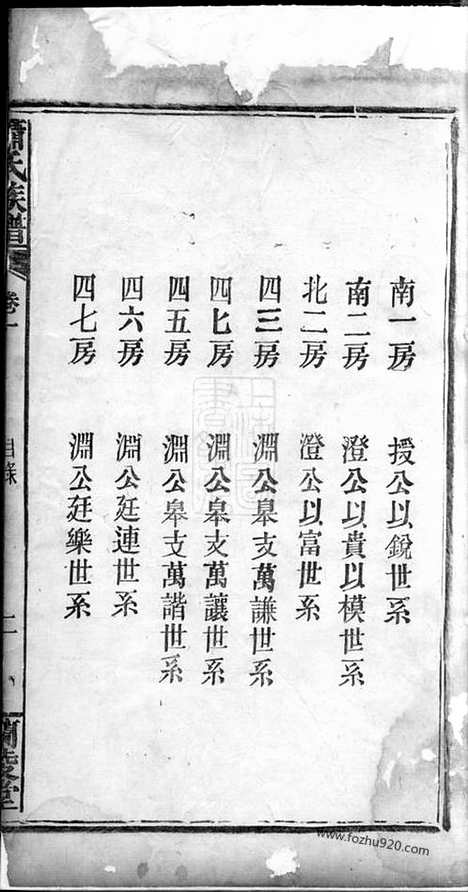 南一房 授公以銳世系
南二房 澄公以貴以模世系
北二房 澄公以富世系
四三房 淵公皋支萬謙世系
四匕房 淵公皋支萬讓世系
四五房 淵公皋支萬諧世系
四六房 淵公廷連世系
四七房 淵公廷樂世系
蕭氏族譜 卷一 目錄 二 蘭陵堂
www.fozhu920.com